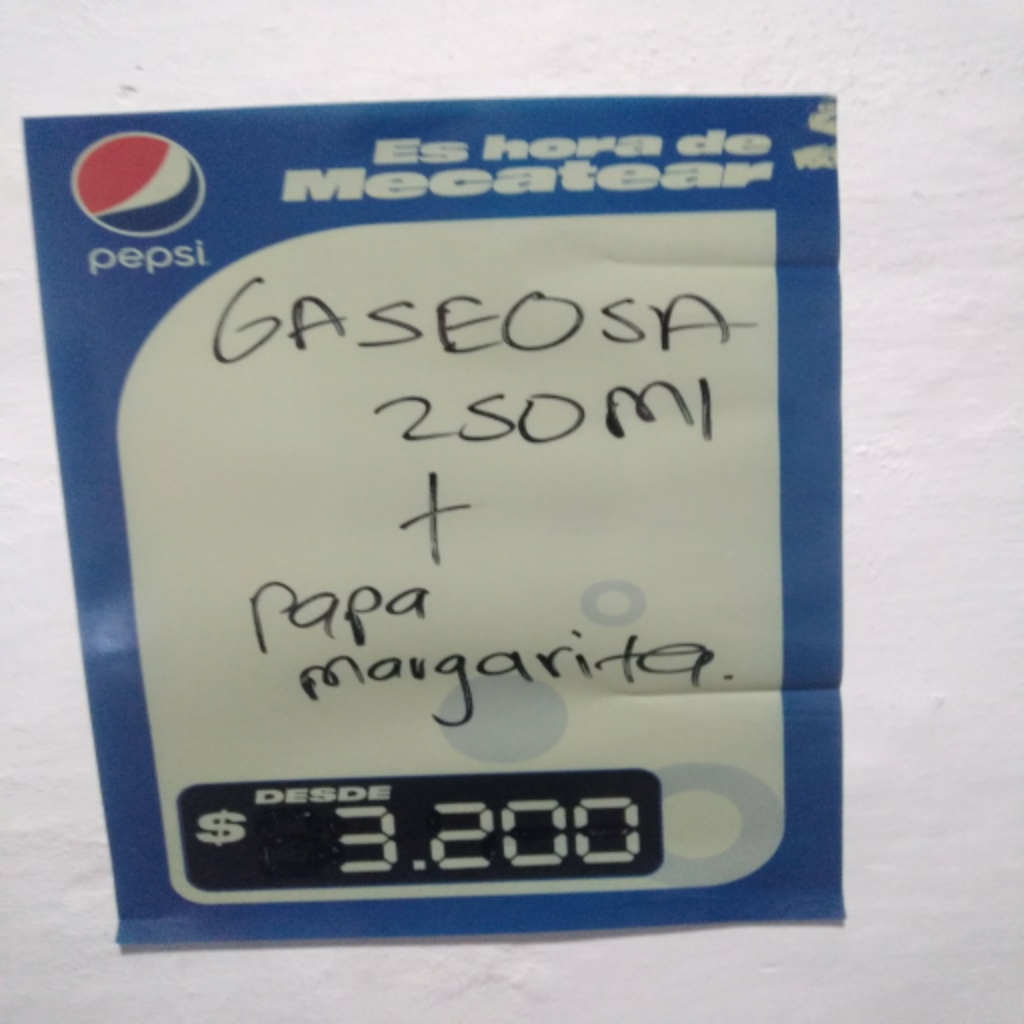 Es hora de
Mecatear
pepsi
GASEOSA
250 Ml
+
papa
margarita.
DESDE
$ 3.200